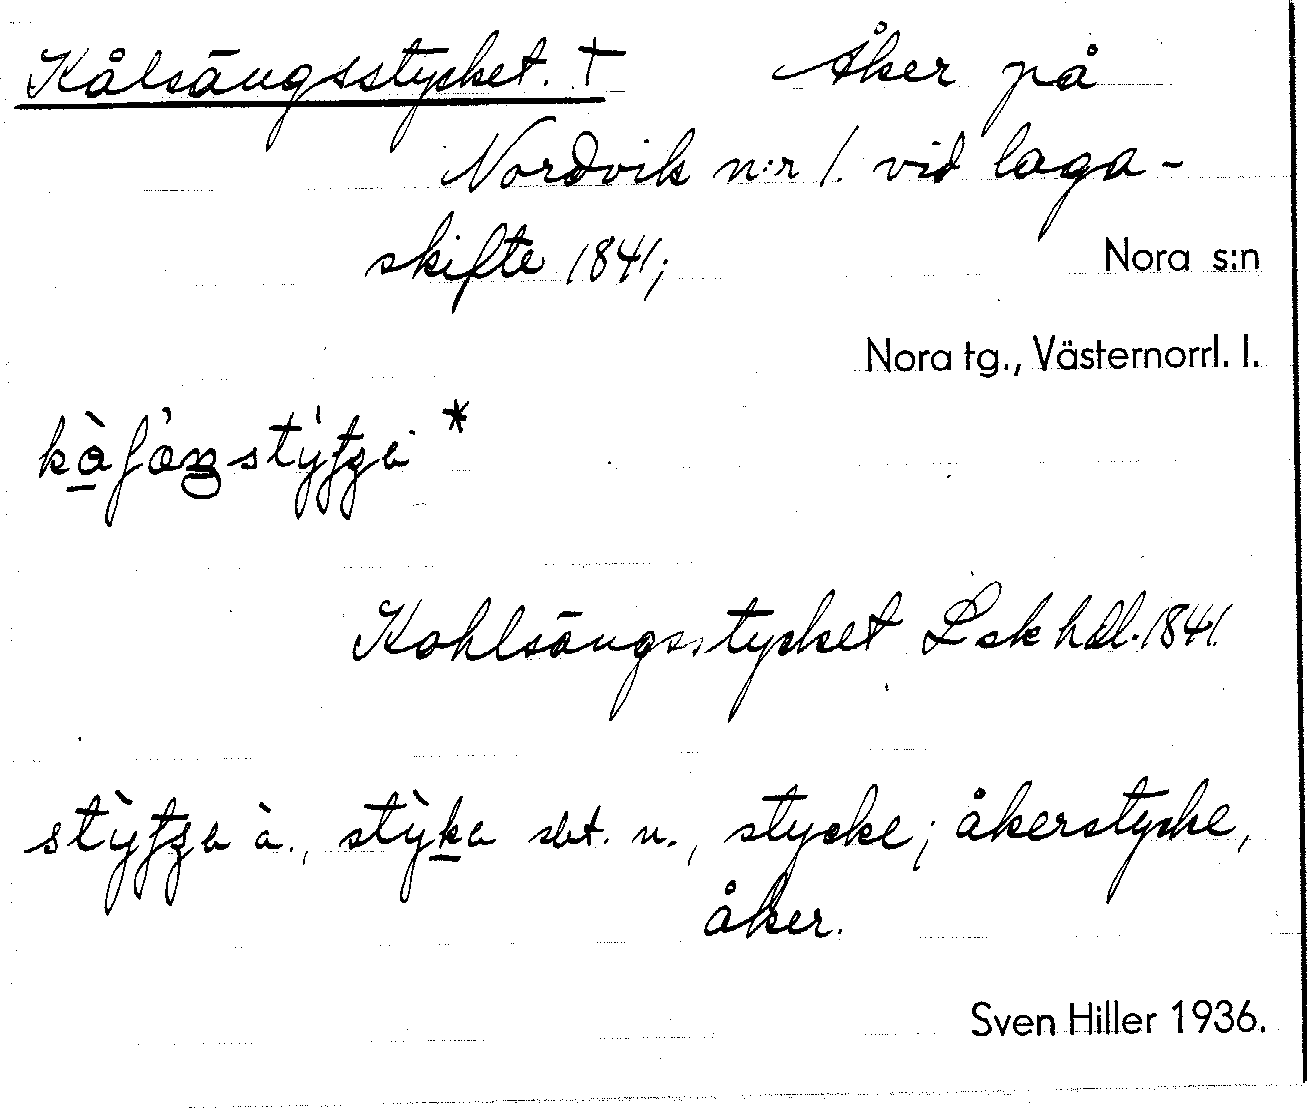 Kålsängsstycket. † Åker på
Nordvik n:r 1. vid laga-
skifte 1841;
Nora s:n
Nora tg., Västernorrl. l.
Kohlsängsstycket Lskhdl. 1841.
sbt. n., stycke; åkerstycke,
åker.
Sven Hiller 1936.